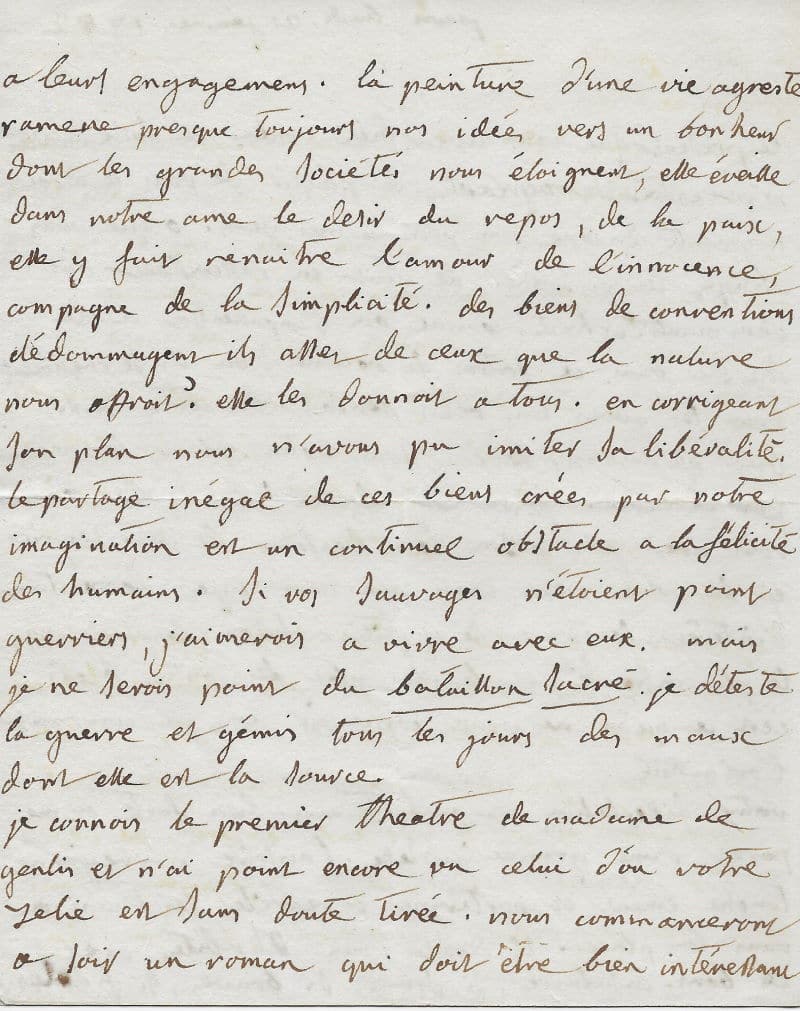 a leurs engagemens. la peinture d'une vie agreste
ramene presque toujours nos idées vers un bonheur
dont les grandes sociétés nous éloignent, elle éveille
dans notre ame le desir du repos, de la paix,
elle y fait renaitre l'amour de l'innocence,
compagne de la simplicité. des biens de conventions
dédommagent ils assés de ceux que la nature
nous offroit? elle les donnoit a tous. en corrigeant
son plan nous n'avons pu imiter sa libéralité.
le partage inégal de ces biens crées par notre
imagination est un continuel obstacle a la félicité
des humains. si vos sauvages n'étoient point
guerriers, j'aimerois a vivre avec eux. mais
je ne serois point du bataillon sacré. je déteste
la guerre et gémis tous les jours des maux
dont elle est la source.
je connois le premier theatre de madame de
genlis et n'ai point encore vu celui d'ou votre
Zelie est sans doute tirée. nous commenceront
a soir un roman qui doit être bien intéressant